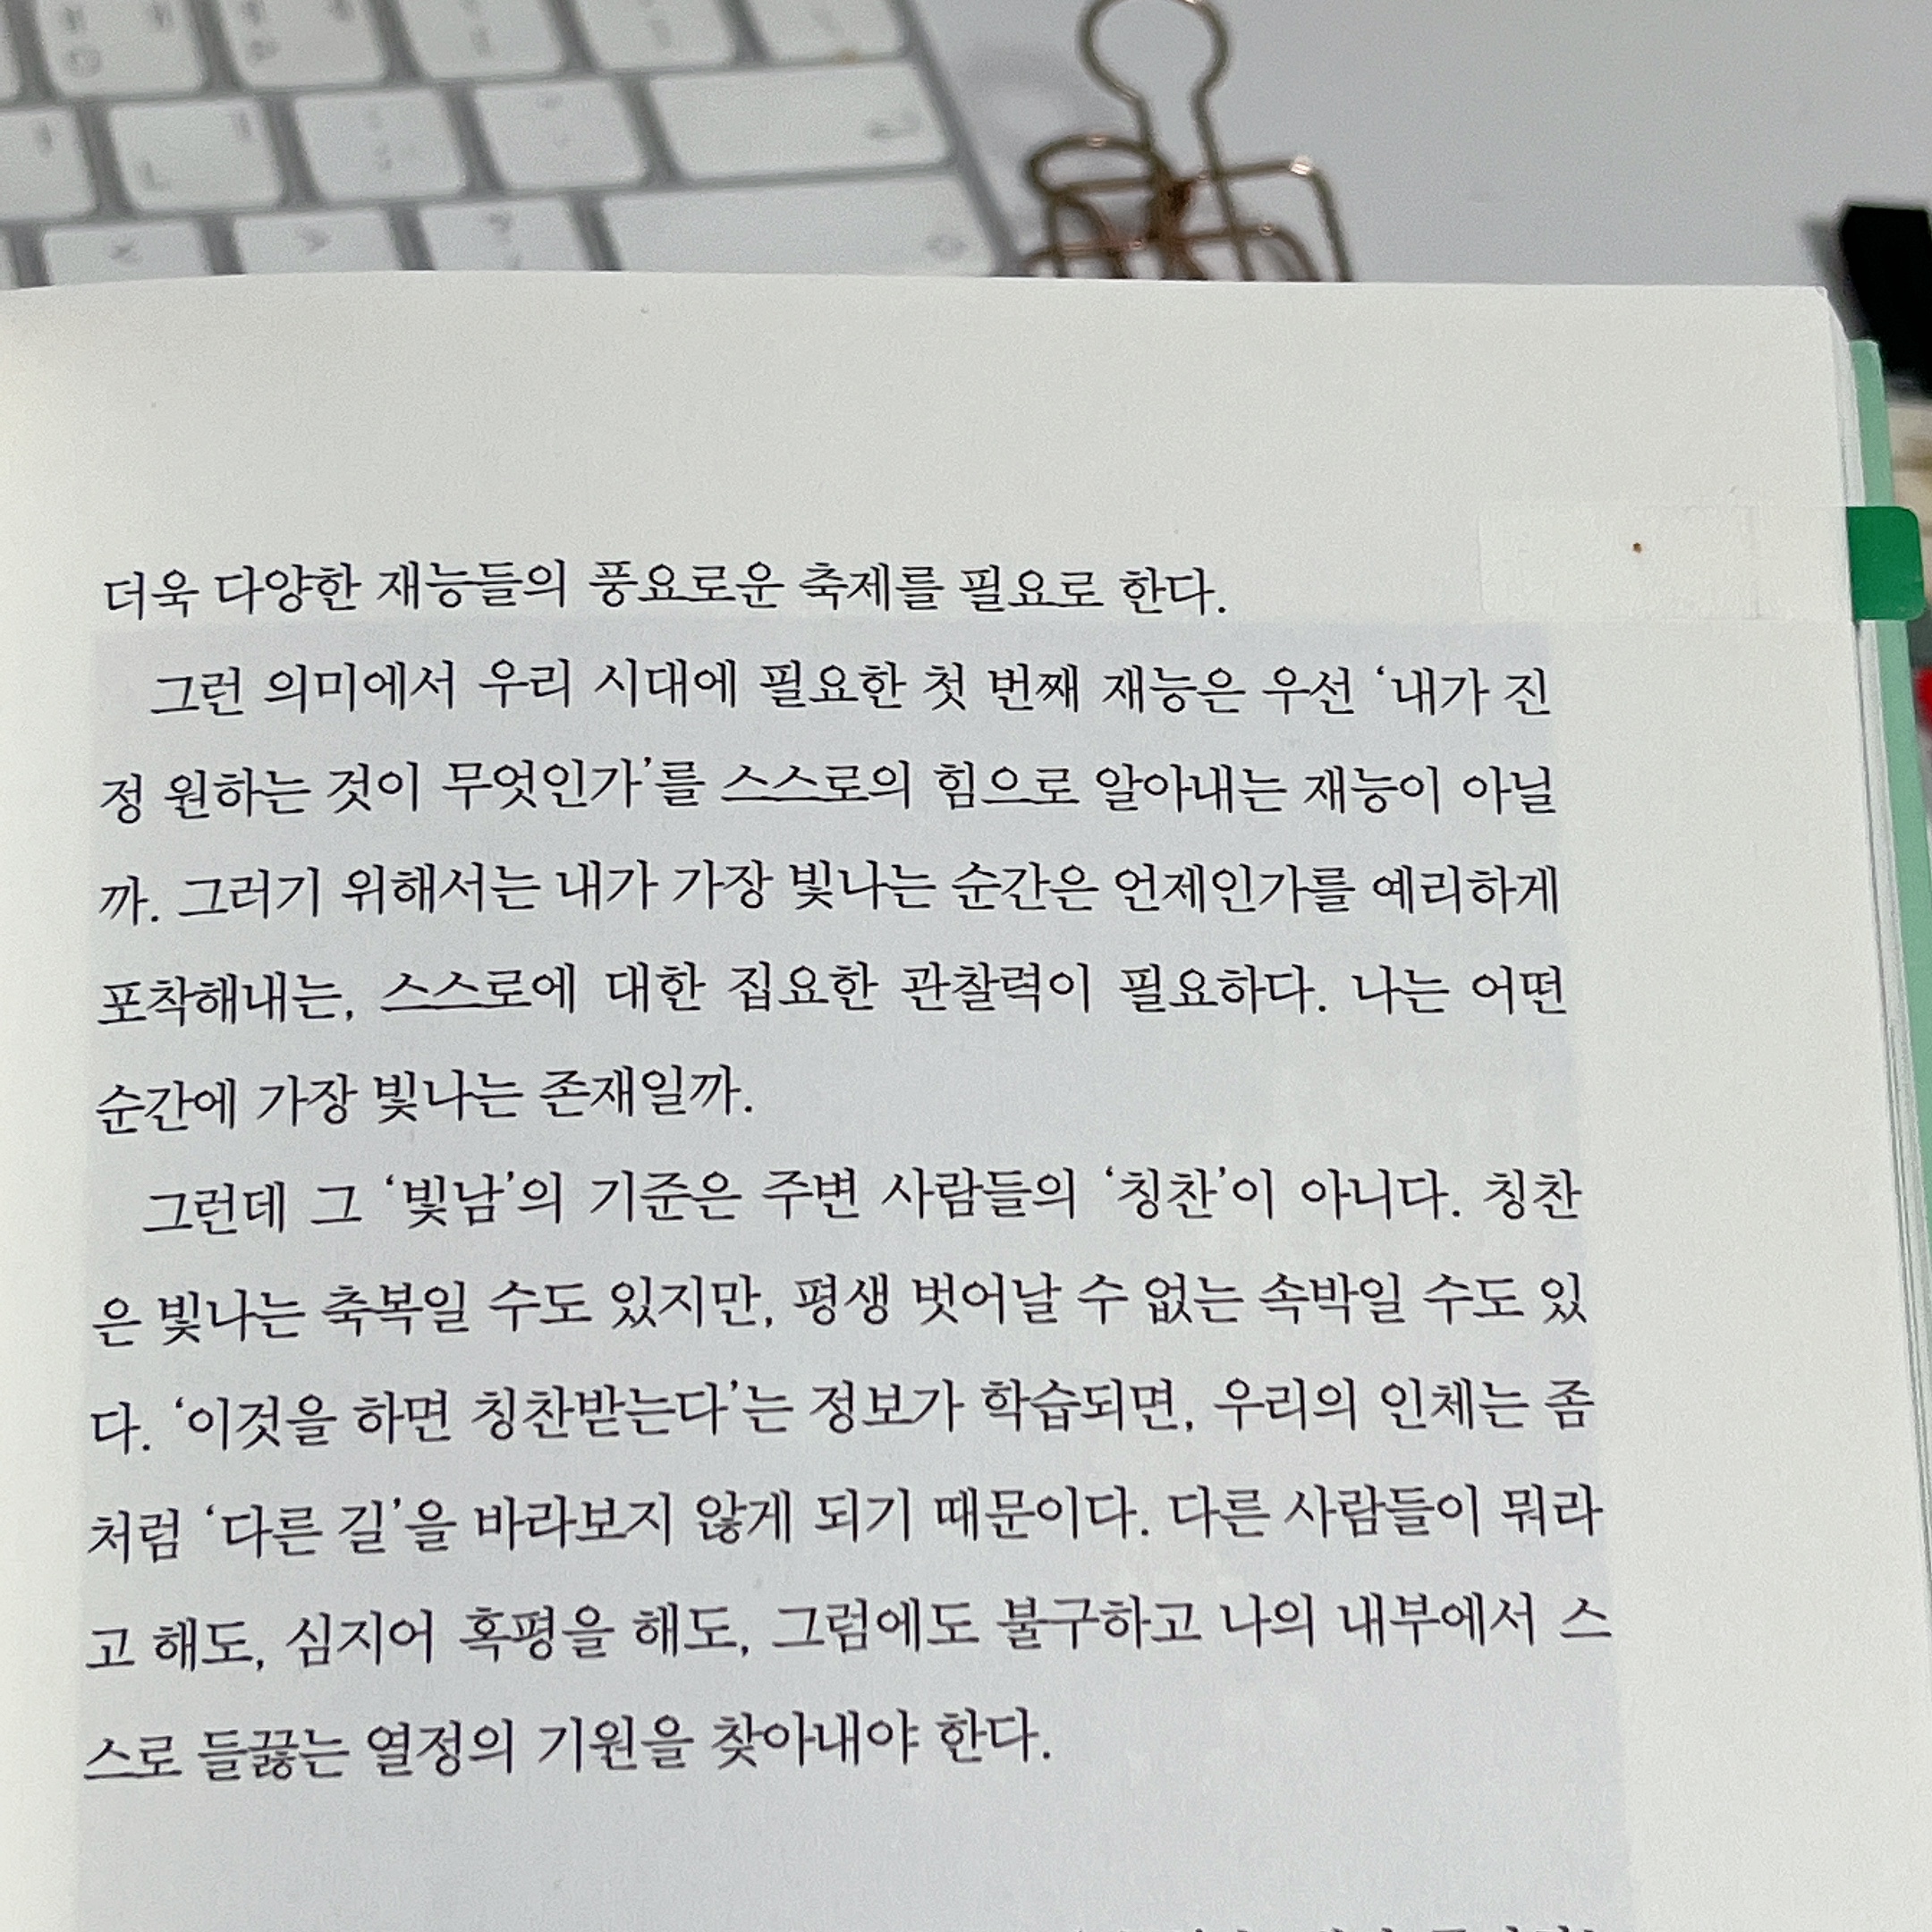 더욱 다양한 재능들의 풍요로운 축제를 필요로 한다.
그런 의미에서 우리 시대에 필요한 첫 번째 재능은 우선 ‘내가 진
정 원하는 것이 무엇인가’를 스스로의 힘으로 알아내는 재능이 아닐
까. 그러기 위해서는 내가 가장 빛나는 순간은 언제인가를 예리하게
포착해내는, 스스로에 대한 집요한 관찰력이 필요하다. 나는 어떤
순간에 가장 빛나는 존재일까.
그런데 그 ‘빛남’의 기준은 주변 사람들의 ‘칭찬’이 아니다. 칭찬
은 빛나는 축복일 수도 있지만, 평생 벗어날 수 없는 속박일 수도 있
다. ‘이것을 하면 칭찬받는다’는 정보가 학습되면, 우리의 인체는 좀
처럼 ‘다른 길’을 바라보지 않게 되기 때문이다. 다른 사람들이 뭐라
고 해도, 심지어 혹평을 해도, 그럼에도 불구하고 나의 내부에서 스
스로 들끓는 열정의 기원을 찾아내야 한다.